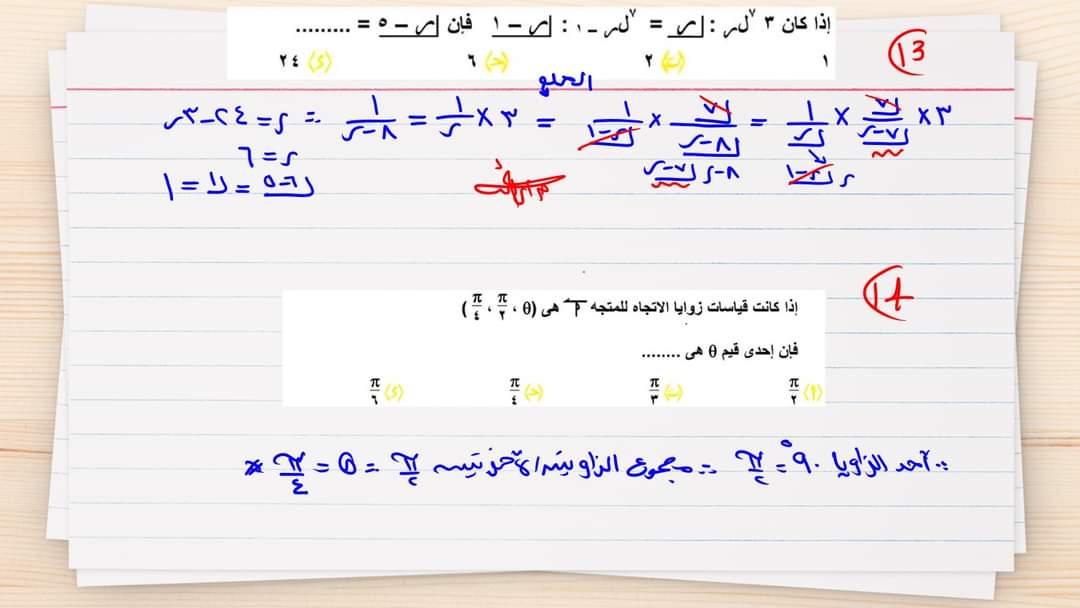 إذا كان ٣ ⁷ل‍ر : ⌊ر = ⁷ل‍ر−١ : ⌊ر − ١ فإن ⌊ر − ٥ = .........
13
١ (ب) ٢ (ج) ٦ (د) ٢٤
الحل
٣ × ⌊٧ / ⌊٧−ر × ١ / ⌊ر = ⌊٧ / ⌊٨−ر × ١ / ⌊ر−١ = ٣ × ١/ر = ١/٨−ر ∴ ر = ٢٤−٣ر
ر ⌊ر−١ ٨−ر ⌊٧−ر ر = ٦
⌊٦−٥ = ⌊١ = ١
14
إذا كانت قياسات زوايا الاتجاه للمتجه أ هى (θ ، π/٢ ، π/٤)
فإن إحدى قيم θ هى ........
(أ) π/٢ (ب) π/٣ (ج) π/٤ (د) π/٦
∵ أحد الزاويا ٩٠° = π/٢ ∴ مجموع الزاويتين الأخرتين π/٢ = θ = π/٤ *